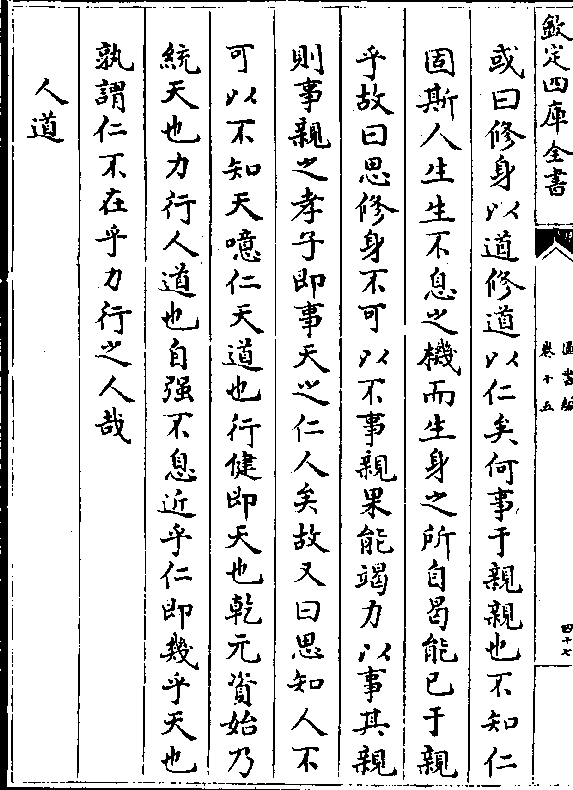 欽定四庫全書
圖書編
卷十五
四十七
或曰修身以道修道以仁矣何事于親親也不知仁
固斯人生生不息之機而生身之所自曷能已于親
乎故曰思修身不可以不事親果能竭力以事其親
則事親之孝子即事天之仁人矣故又曰思知人不
可以不知天噫仁天道也行健即天也乾元資始乃
統天也力行人道也自强不息近乎仁即幾乎天也
孰謂仁不在乎力行之人哉
人道